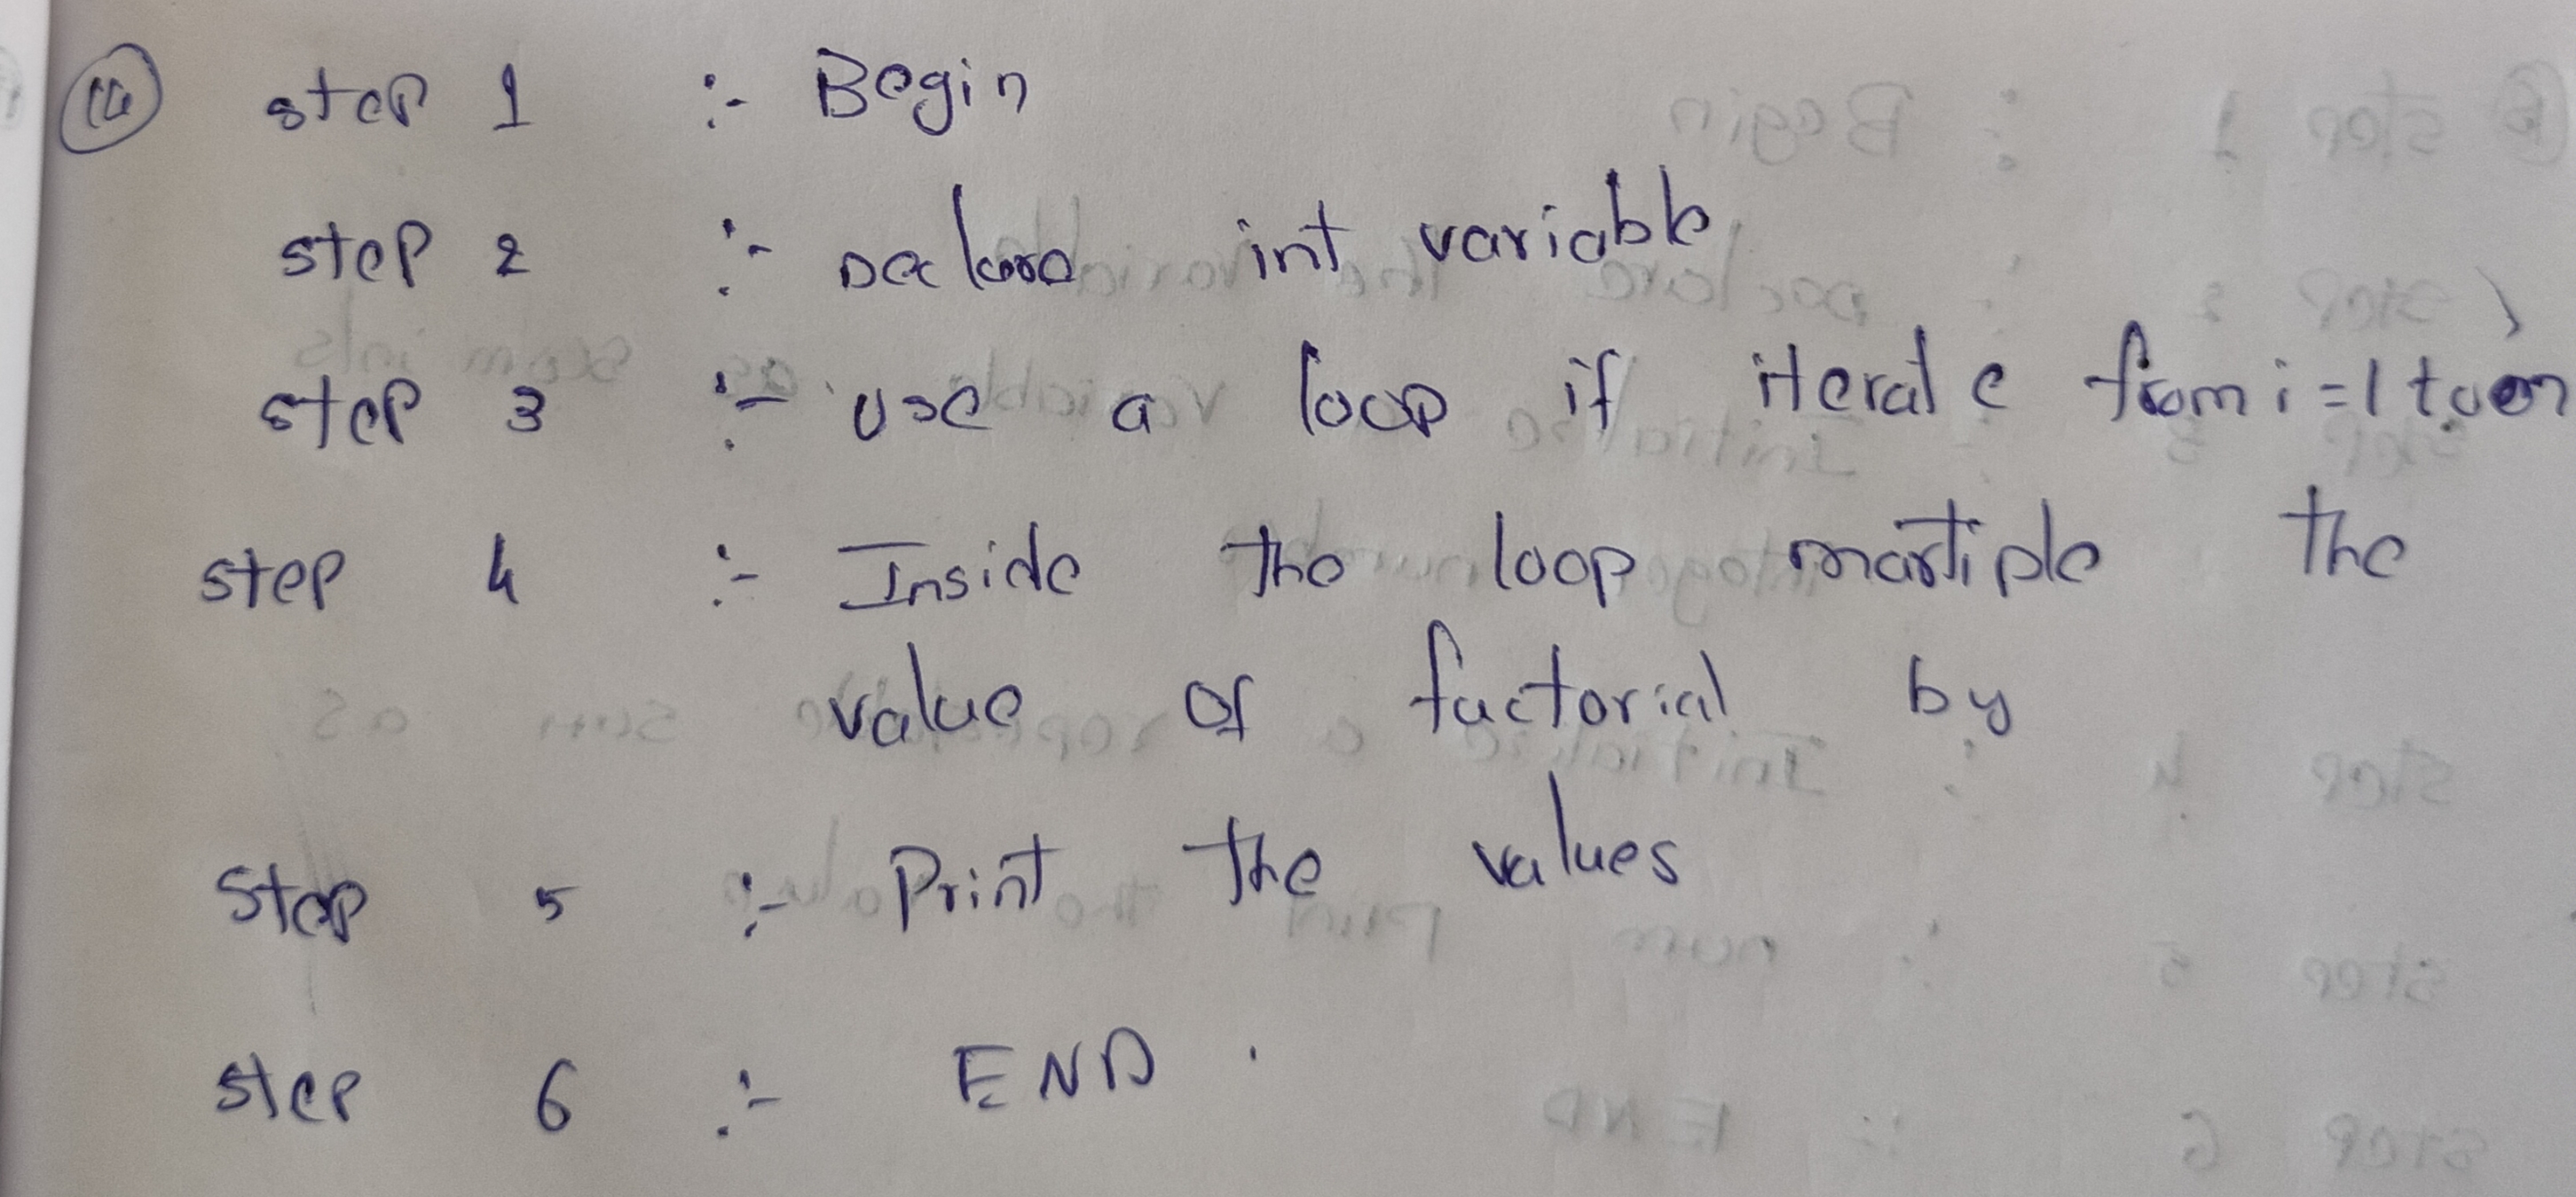 step 1 :- Begin
step 2 :- Declare int variable
step 3 :- use a loop if iterate from i=1 to
step 4 :- Inside the loop multiple the
value of factorial by
Step 5 :- Print the values
step 6 :- END .